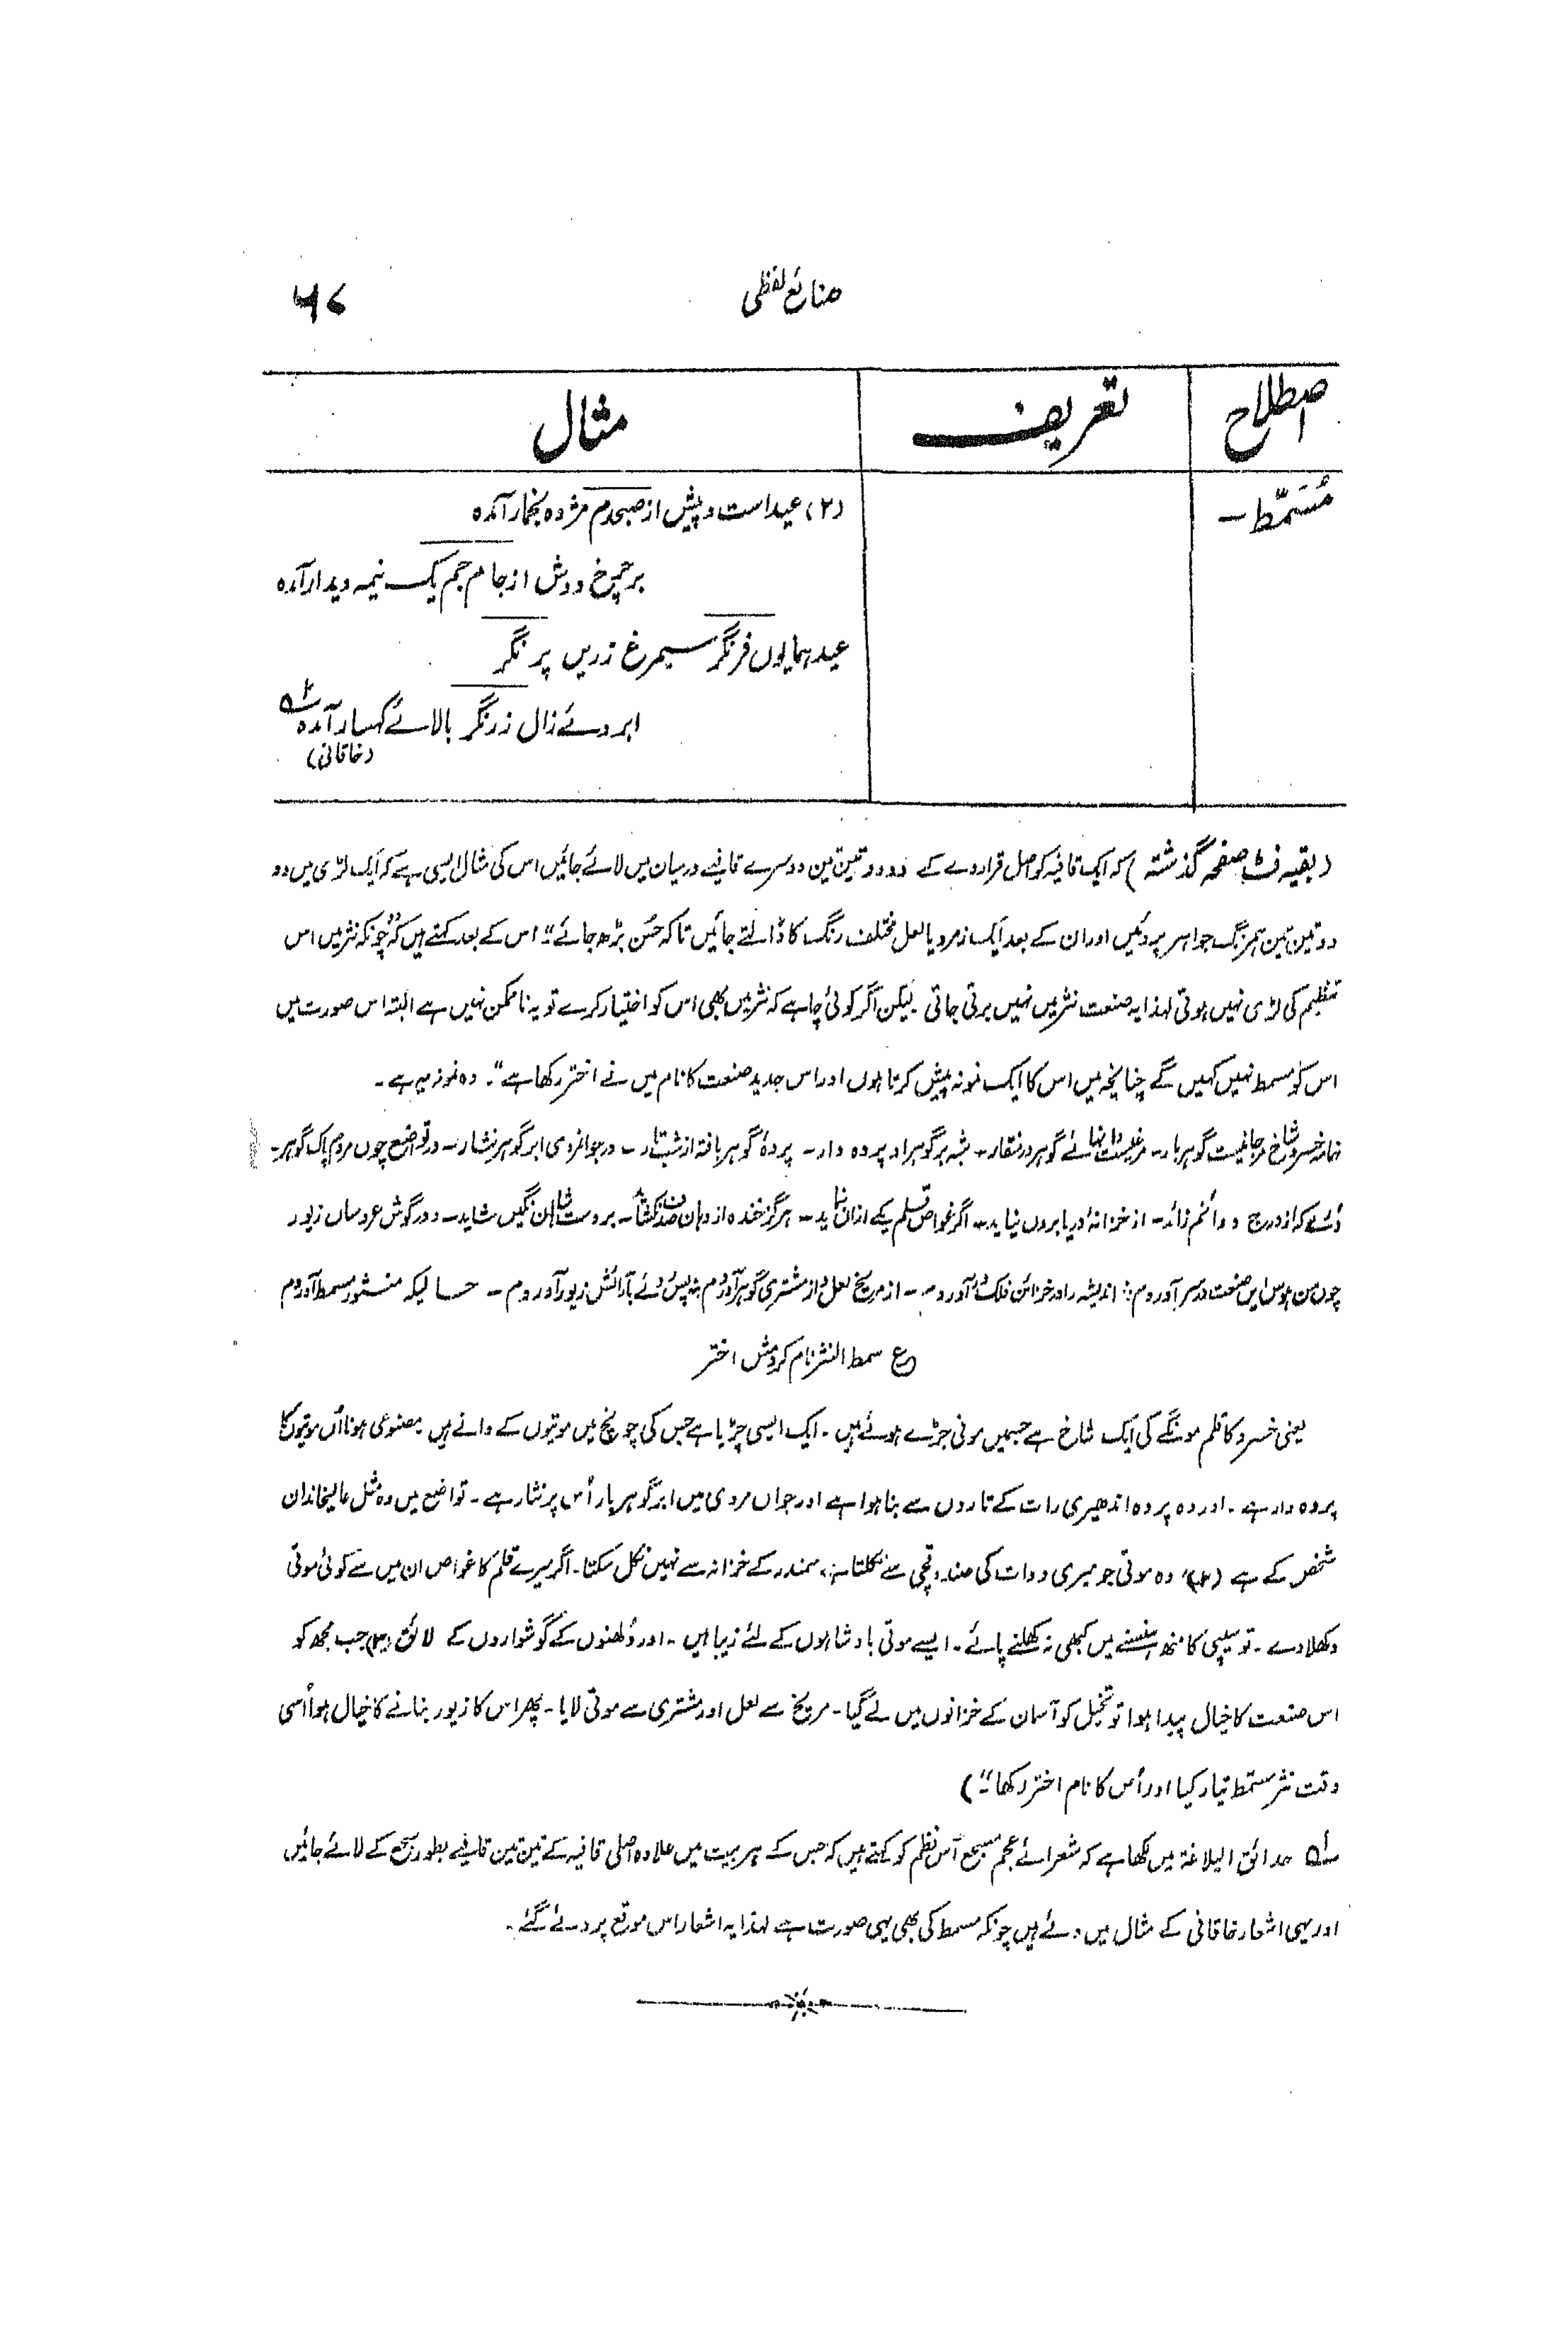 صنائع لفظی
۶۷
اصطلاح تعریف مثال
مُسَمَّط۔
(۲) عید است و پیش از صبحدم مژدہ بخمار آمدہ
بر چرخ دوش از جام جم یک نیمہ دیدار آمدہ
عید ہمایوں فر نگر سیمرغ زریں پر نگر
ابروئے زال زر نگر بالائے کہسار آمدہ
(خاقانی)
(بقیہ صفحہ گذشتہ) کہ ایک قافیہ کو اصل قرار دے کے دو دو تین تین دوسرے قافیے درمیان میں لائے جائیں اس کی مثال ایسی ہے کہ ایک لڑی میں دو
دو تین تین ہمرنگ جواہر پروئیں اور ان کے بعد ایک زمرد یا لعل مختلف رنگ کا ڈالتے جائیں تاکہ حُسن بڑھ جائے“۔ اس کے بعد کہتے ہیں کہ ”چونکہ نثر میں اس
تنظیم کی لڑی نہیں ہوتی لہذا یہ صنعت نثر میں نہیں برتی جاتی لیکن اگر کوئی چاہے کہ نثر میں بھی اس کو اختیار کرے تو یہ ناممکن نہیں ہے البتہ اس صورت میں
اس کو مسمط نہیں کہیں گے چنانچہ میں اس کا ایک نمونہ پیش کرتا ہوں اور اس جدید صنعت کا نام میں نے اختر رکھا ہے“۔ وہ نمونہ یہ ہے۔
خسرو شاخ مرجانیست گوہر بار۔ گوہر در منقار۔ پردہ دار۔ پردۂ گوہر بافتہ از شب تار۔ در جوانمردی ابر گوہر نثار۔ در تواضع چوں مردم پاک گوہر۔
کہ از درج دواتم زائد۔ از خزانۂ دریا بروں نیاید۔ اگر غواص قلم یکے ازاں نماید۔ ہرگز خندہ از دہان صدف نکشاید۔ بر دست شاہان نگیں شاید۔ و در گوش عروساں زیور
چوں من ہوس ایں صنعت در سر آوردم۔ اندیشہ را در خزائن فلک در آوردم۔ از مریخ لعل و از مشتری گوہر آوردم پس آرائش زیور آوردم۔ حالیکہ منثور مسمط آوردم
ع سمط النثر نام کردمش اختر
یعنی خسرو کا قلم مونگے کی ایک شاخ ہے جسمیں موتی جڑے ہوئے ہیں۔ ایک ایسی چڑیا ہے جس کی چونچ میں موتیوں کے دانے ہیں مصنوعی ہونا اُن موتیوں کا
پردہ دار ہے۔ اور وہ پردہ اندھیری رات کے تاروں سے بنا ہوا ہے اور جواں مردی میں ابر گوہر بار اُس پر نثار ہے۔ تواضع میں وہ مثل عالیخاندان
شخص کے ہے (۲) وہ موتی جو میری دوات کی صندوقچی سے نکلتا ہے، سمندر کے خزانہ سے نہیں نکل سکتا۔ اگر میرے قلم کا غواص ان میں سے کوئی موتی
دکھلا دے۔ تو سیپی کا منھ ہنسنے میں کبھی نہ کھلنے پائے۔ ایسے موتی بادشاہوں کے لئے زیبا ہیں۔ اور دُلھنوں کے گوشواروں کے لائق (۳) جب مجھ کو
اس صنعت کا خیال پیدا ہوا تو تخیل کو آسمان کے خزانوں میں لے گیا۔ مریخ سے لعل اور مشتری سے موتی لایا۔ پھر اس کا زیور بنانے کا خیال ہوا اُسی
وقت نثر مسمط تیار کیا اور اُس کا نام اختر رکھا“۔)
حدائق البلاغۃ میں لکھا ہے کہ شعرائے عجم مسجع اُس نظم کو کہتے ہیں کہ جس کے ہر بیت میں علاوہ اصلی قافیہ کے تین تین قافیے بطور سجع کے لائے جائیں
اور یہی اشعار خاقانی کے مثال میں دئے ہیں چونکہ مسمط کی بھی یہی صورت ہے لہذا یہ اشعار اس موقع پر دئے گئے۔